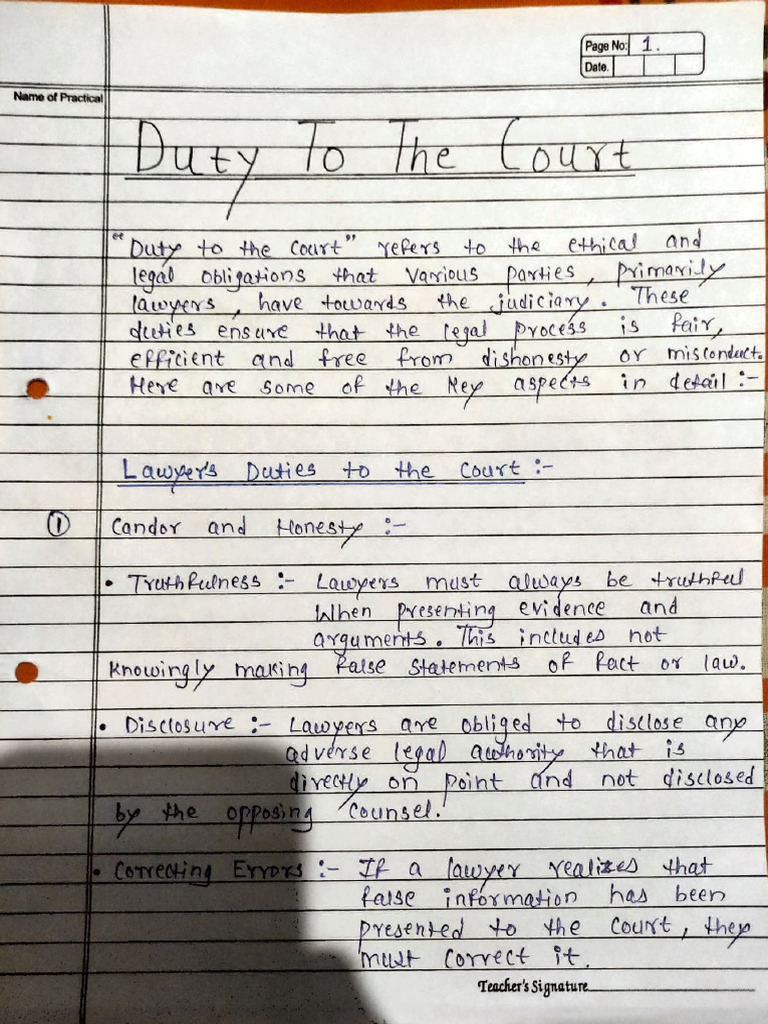 Page No: 1.
Date.
Name of Practical
Duty To The Court
"Duty to the court" refers to the ethical and
legal obligations that various parties, primarily
lawyers, have towards the judiciary. These
duties ensure that the legal process is fair,
efficient and free from dishonesty or misconduct.
Here are some of the key aspects in detail :-
Lawyer's Duties to the Court :-
① Candor and Honesty :-
• Truthfulness :- Lawyers must always be truthful
when presenting evidence and
arguments. This includes not
knowingly making false statements of fact or law.
• Disclosure :- Lawyers are obliged to disclose any
adverse legal authority that is
directly on point and not disclosed
by the opposing counsel.
• Correcting Errors :- If a lawyer realizes that
false information has been
presented to the court, they
must correct it.
Teacher's Signature